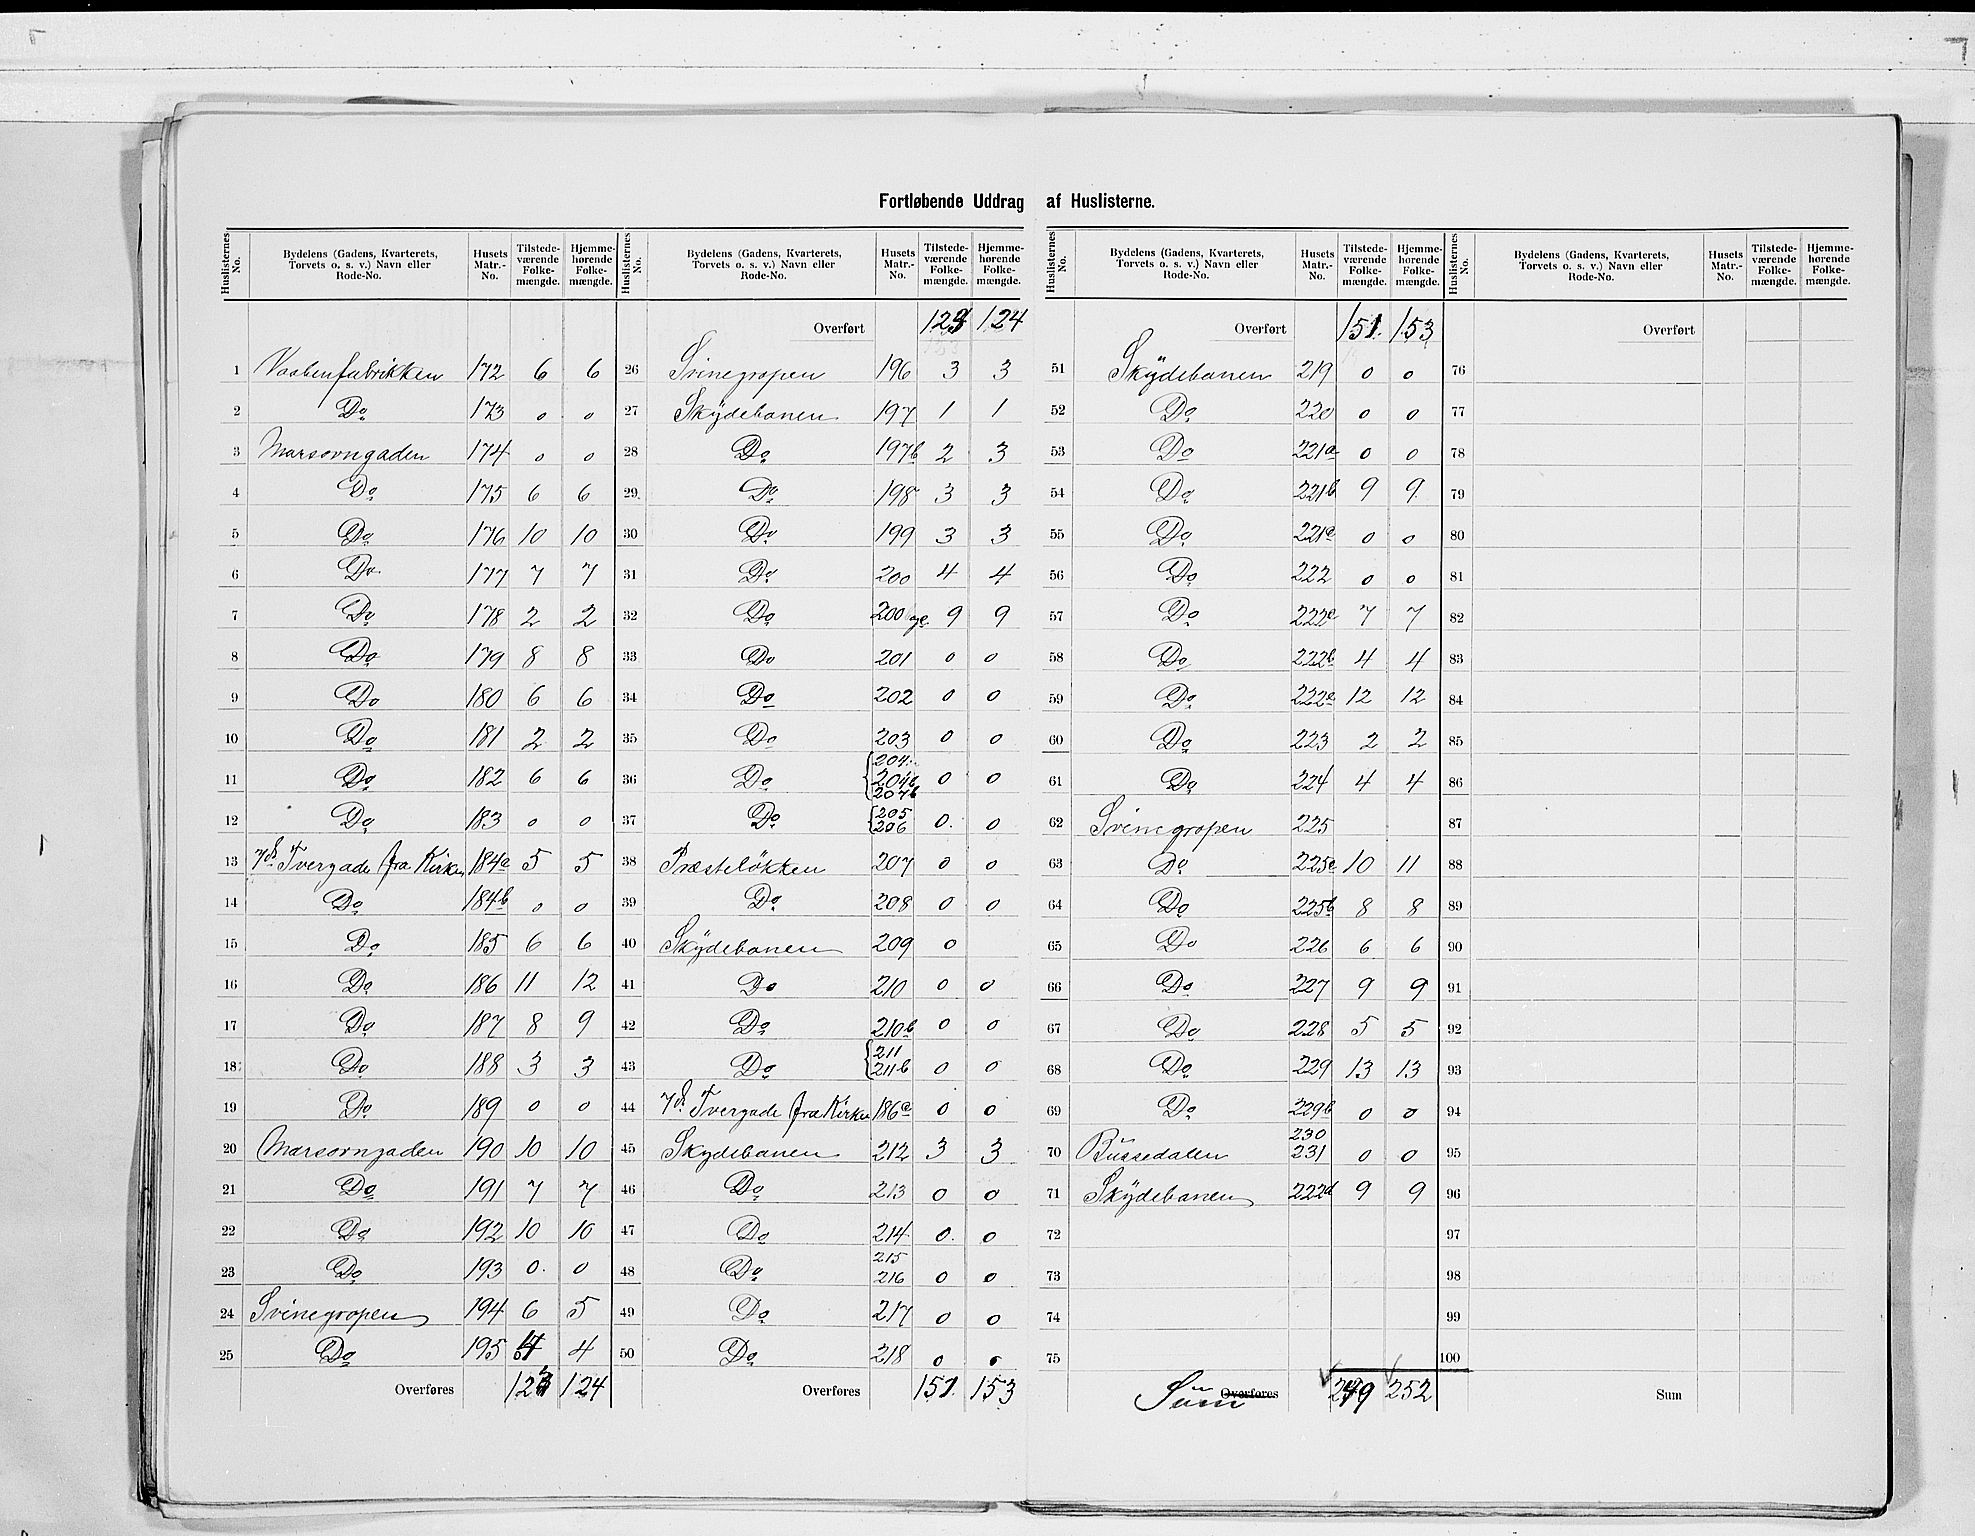 Fortløbende Uddrag af Huslisterne.
Huslisternes No. | Bydelens (Gadens, Kvarterets, Torvets o. s. v.) Navn eller Rode-No. | Husets Matr.-No. | Tilstede-værende Folke-mængde. | Hjemme-hørende Folke-mængde.
1 Vaabenfabrikken 172 6 6
2 Do 173 0 0
3 Marsovngaden 174 0 0
4 Do 175 6 6
5 Do 176 10 10
6 Do 177 7 7
7 Do 178 2 2
8 Do 179 8 8
9 Do 180 6 6
10 Do 181 2 2
11 Do 182 6 6
12 Do 183 0 0
13 7de Tvergade fra Kirken 184a 5 5
14 Do 184b 0 0
15 Do 185 6 6
16 Do 186 11 12
17 Do 187 8 9
18 Do 188 3 3
19 Do 189 0 0
20 Marsovngaden 190 10 10
21 Do 191 7 7
22 Do 192 10 10
23 Do 193 0 0
24 Svinegropen 194 6 5
25 Do 195 4 4
Overføres 123 124
Huslisternes No. | Bydelens (Gadens, Kvarterets, Torvets o. s. v.) Navn eller Rode-No. | Husets Matr.-No. | Tilstede-værende Folke-mængde. | Hjemme-hørende Folke-mængde.
Overført 123 124
26 Svinegropen 196 3 3
27 Skydebanen 197 1 1
28 Do 197b 2 3
29 Do 198 3 3
30 Do 199 3 3
31 Do 200 4 4
32 Do 200 9 9
33 Do 201 0 0
34 Do 202 0 0
35 Do 203 0 0
36 Do 204 204b 207b 0 0
37 Do 205 206 0 0
38 Præsteløkken 207 0 0
39 Do 208 0 0
40 Skydebanen 209 0
41 Do 210 0 0
42 Do 210b 0 0
43 Do 211 211b 0 0
44 7de Tvergade fra Kirken 186a 0 0
45 Skydebanen 212 3 3
46 Do 213 0 0
47 Do 214 0 0
48 Do 215 216 0 0
49 Do 217 0 0
50 Do 218 0 0
Overføres 151 153
Huslisternes No. | Bydelens (Gadens, Kvarterets, Torvets o. s. v.) Navn eller Rode-No. | Husets Matr.-No. | Tilstede-værende Folke-mængde. | Hjemme-hørende Folke-mængde.
Overført 151 153
51 Skydebanen 219 0 0
52 Do 220 0 0
53 Do 221a 0 0
54 Do 221b 9 9
55 Do 221c 0 0
56 Do 222 0 0
57 Do 222a 7 7
58 Do 222b 4 4
59 Do 222c 12 12
60 Do 223 2 2
61 Do 224 4 4
62 Svinegropen 225
63 Do 225a 10 11
64 Do 225b 8 8
65 Do 226 6 6
66 Do 227 9 9
67 Do 228 5 5
68 Do 229 13 13
69 Do 229b 0 0
70 Bussedalen 230 231 0 0
71 Skydebanen 222d 9 9
72
73
74
75
Sum Overføres 249 252
Huslisternes No. | Bydelens (Gadens, Kvarterets, Torvets o. s. v.) Navn eller Rode-No. | Husets Matr.-No. | Tilstede-værende Folke-mængde. | Hjemme-hørende Folke-mængde.
Overført
76
77
78
79
80
81
82
83
84
85
86
87
88
89
90
91
92
93
94
95
96
97
98
99
100
Sum